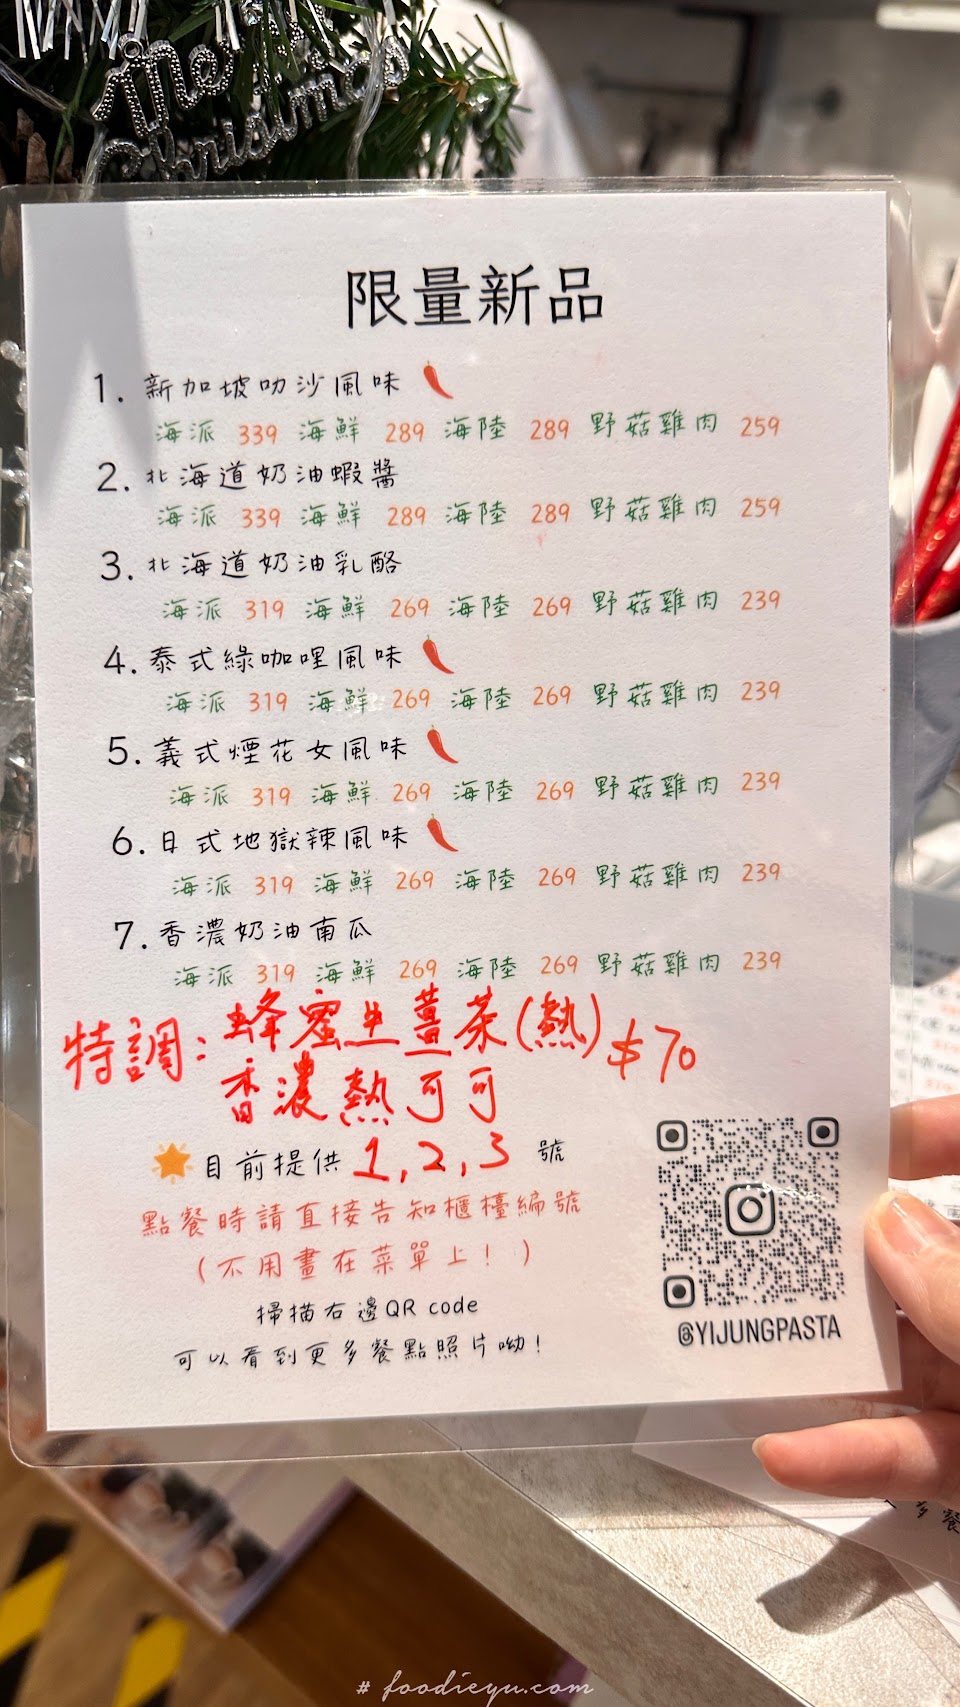 Merry
Christmas
限量新品
1. 新加坡叻沙風味
海派 339 海鮮 289 海陸 289 野菇雞肉 259
2. 北海道奶油蝦醬
海派 339 海鮮 289 海陸 289 野菇雞肉 259
3. 北海道奶油乳酪
海派 319 海鮮 269 海陸 269 野菇雞肉 239
4. 泰式綠咖哩風味
海派 319 海鮮 269 海陸 269 野菇雞肉 239
5. 義式煙花女風味
海派 319 海鮮 269 海陸 269 野菇雞肉 239
6. 日式地獄辣風味
海派 319 海鮮 269 海陸 269 野菇雞肉 239
7. 香濃奶油南瓜
海派 319 海鮮 269 海陸 269 野菇雞肉 239
特調: 蜂蜜生薑茶(熱) $70
香濃熱可可
目前提供 1, 2, 3 號
點餐時請直接告知櫃檯編號
(不用畫在菜單上!)
掃描右邊QR code
可以看到更多餐點照片呦!
@YIJUNGPASTA
多餐
# foodieyu.com